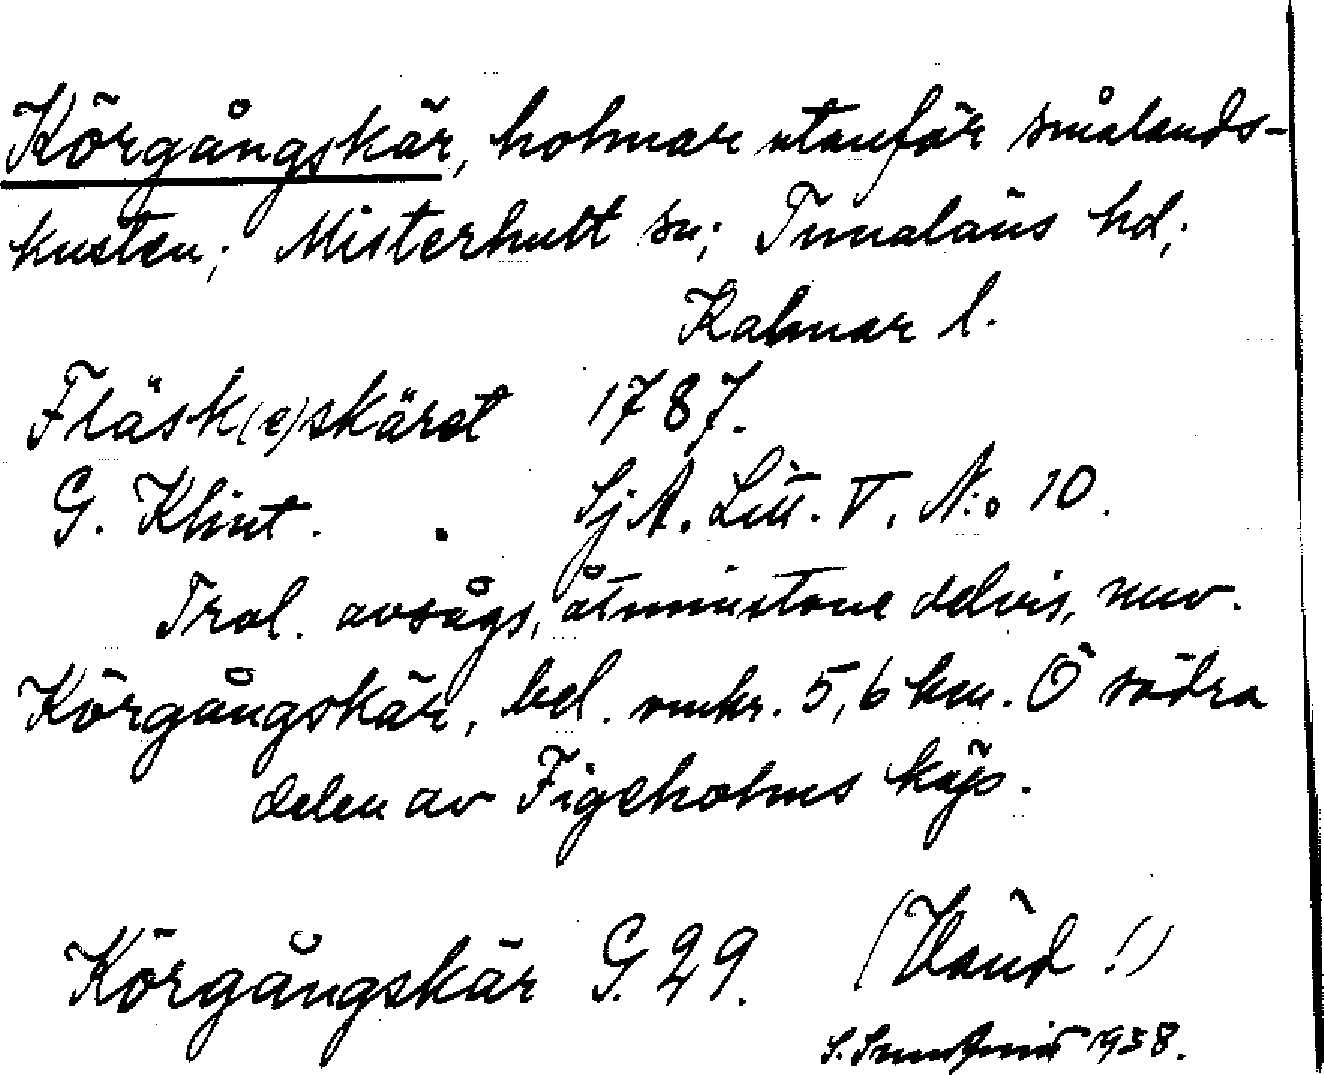 Körgångskär, holmar utanför smålands-
kusten; Misterhult sn; Tunaläns hd;
Kalmar l.
Fläsk(e)skäret 1787.
G. Klint. Sj A. Litt. V. N:o 10.
Trol. avságs, åtminstone delvis, nuv.
Körgångskär, bel. omkr. 5,6 km. Ö södra
delen av Figeholms köp.
Körgångskär G. 29. (Vänd!)
S. 1938.